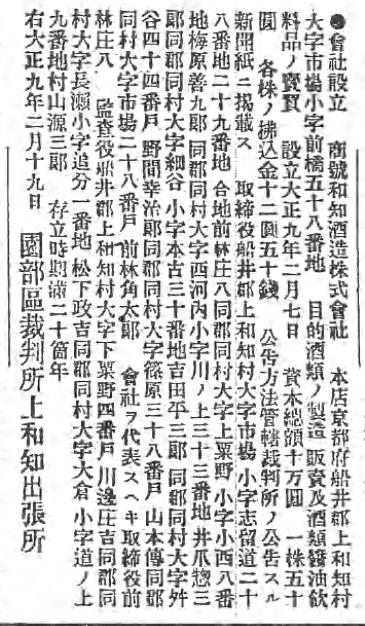 ●會社設立　商號和知酒造株式會社　本店京都府船井郡上和知村
大字市場小字前橋五十八番地　目的酒類ノ製造販賣及酒類醬油飲
料品ノ賣買　設立大正九年二月七日　資本總額十万圓　一株五十
圓　各株ノ拂込金十二圓五十錢　公告方法管轄裁判所ノ公告スル
新聞紙ニ揭載ス　取締役船井郡上和知村大字市場小字志留道二十
八番地二十九番地合地前林庄八同郡同村大字上粟野小字小西八番
地梅原善九郎　同郡同村大字西河內小字川ノ上三十三番地井爪惣三
郎同郡同村大字細谷小字本古三十番地吉田平三郎　同郡同村大字舛
谷四十四番戶　野間幸治郎同郡同村大字篠原三十八番戶　山本傳同郡
同村大字市場二十八番戶　前林角太郎　會社ヲ代表スヘキ取締役前
林庄八　監査役船井郡上和知村大字下粟野四番戶川邊庄吉同郡同
村大字長瀨小字追分一番地　松下政吉同郡同村大字大倉小字道ノ上
九番地村山源三郎　存立時期滿二十箇年
右大正九年二月十九日　園部區裁判所上和知出張所